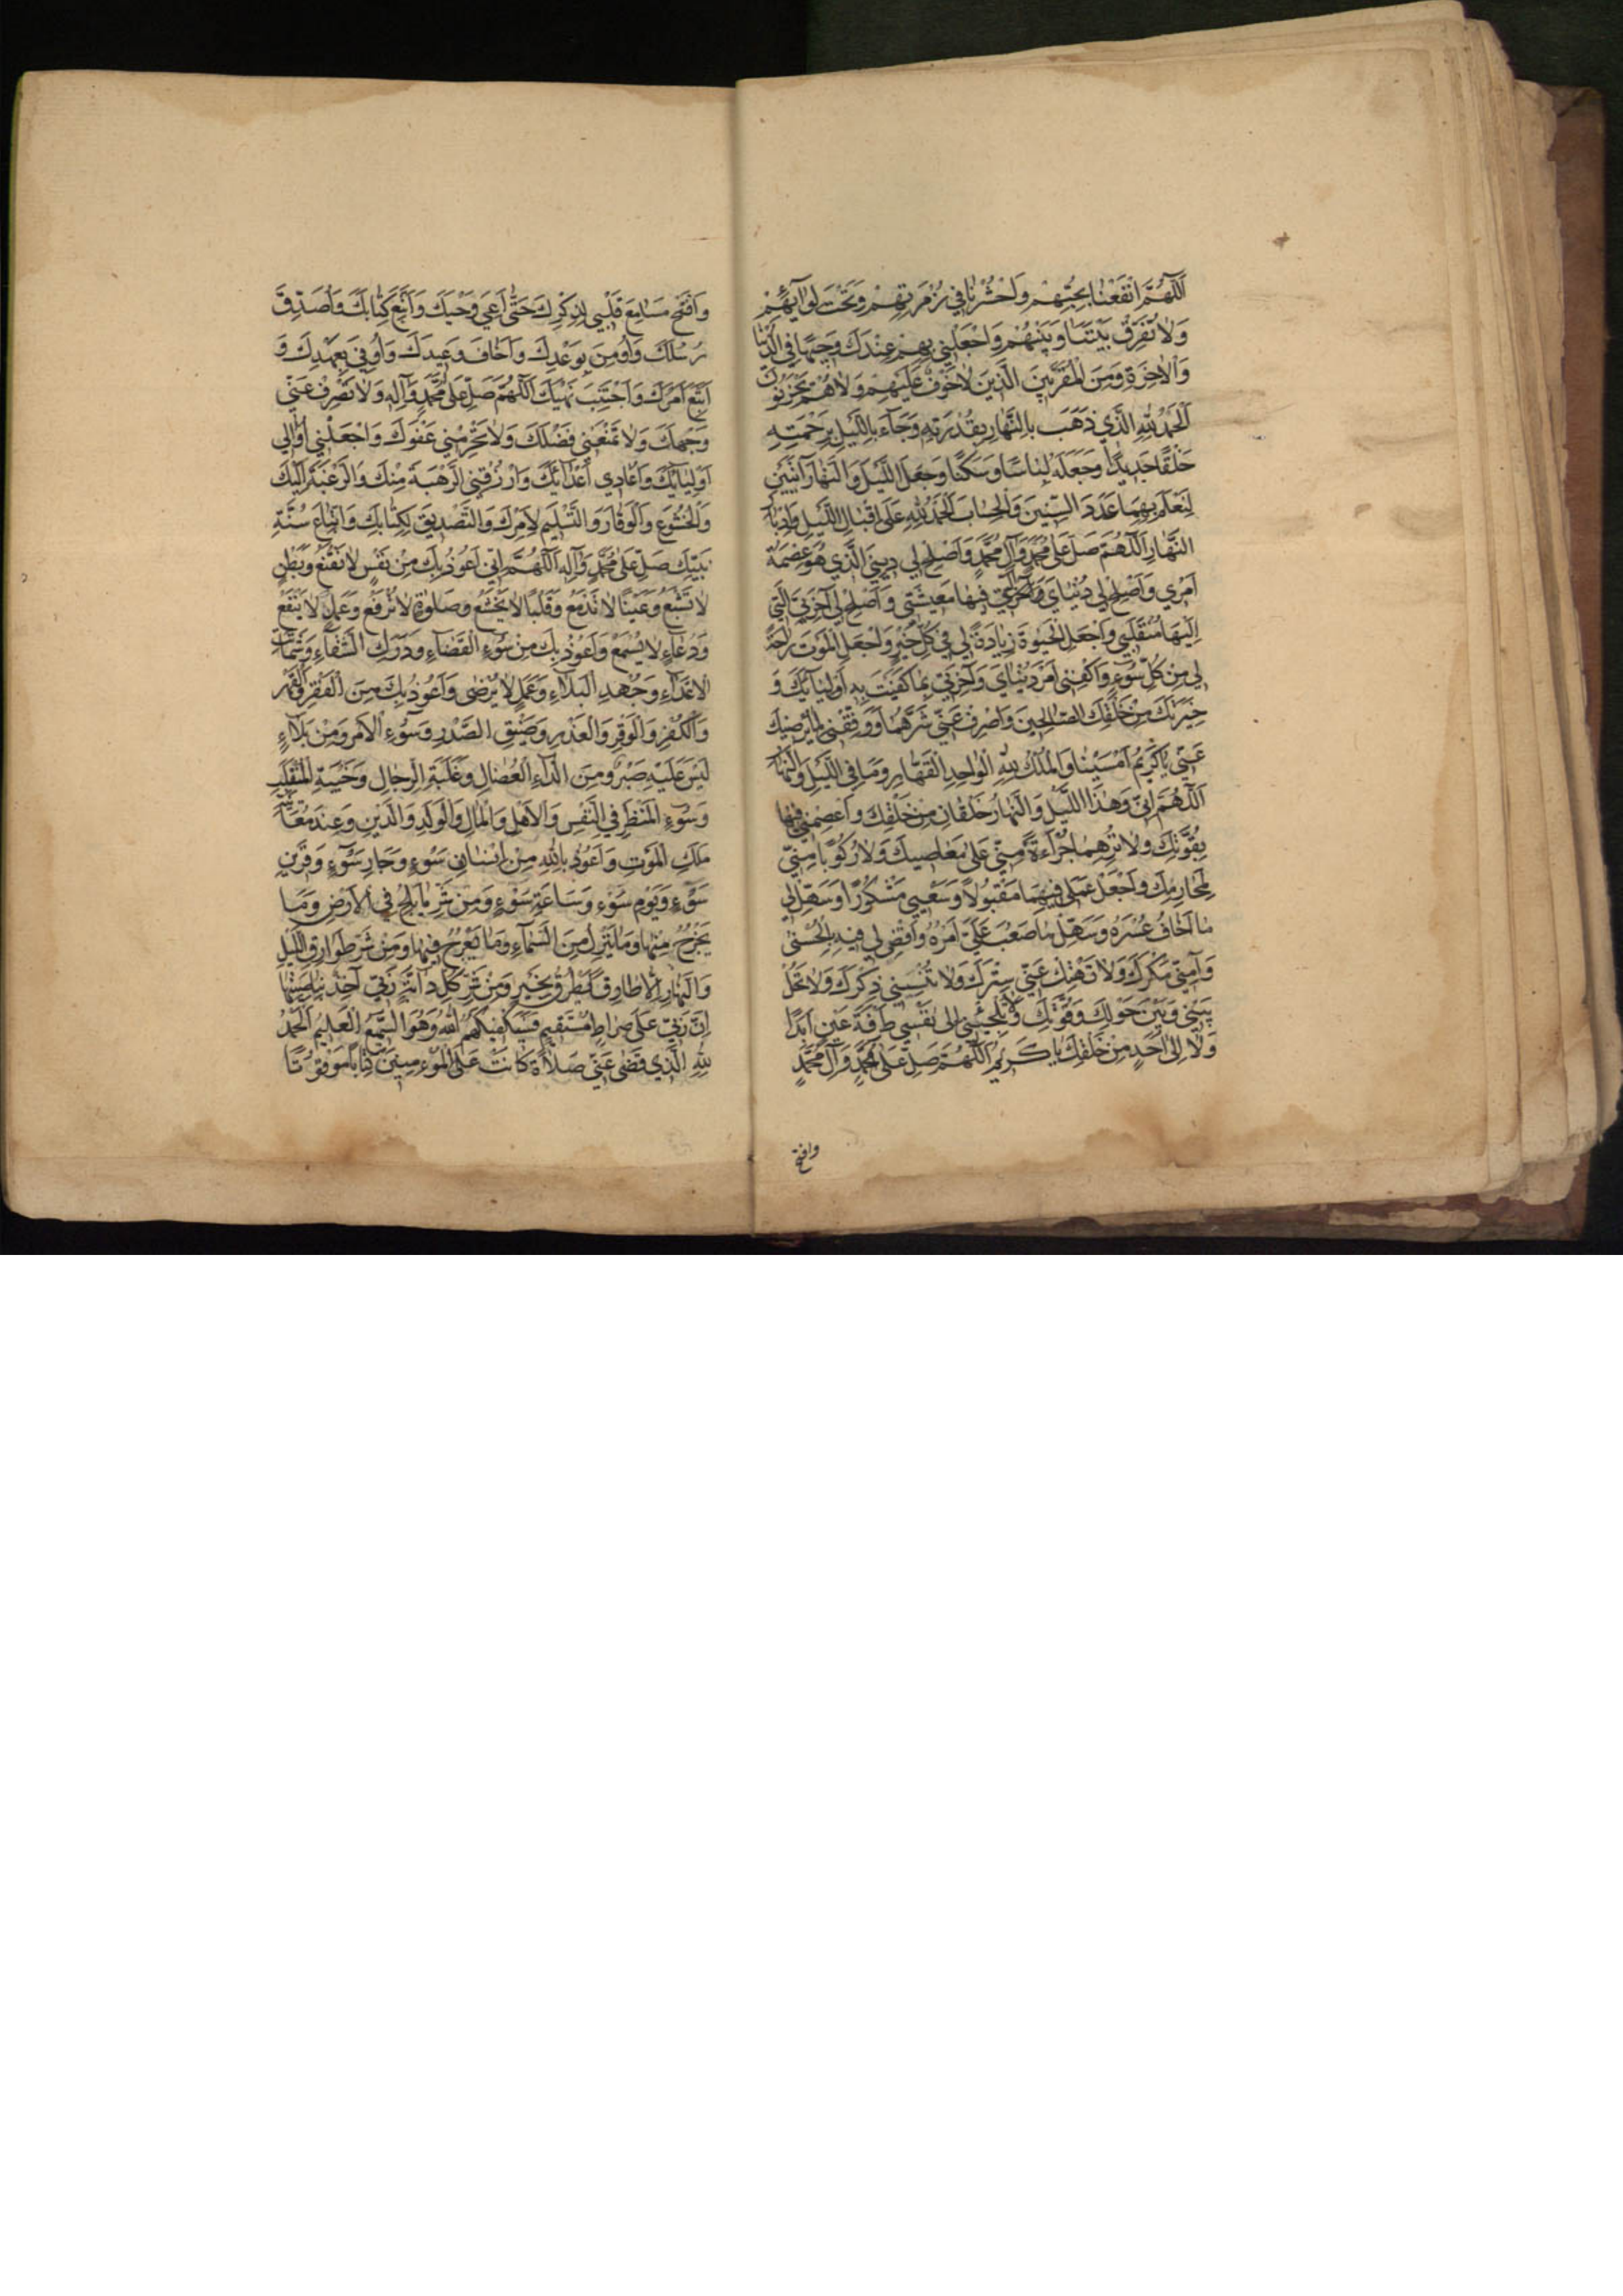 اَللّٰهُمَّ انْفَعْنَا بِحُبِّهِمْ وَاحْشُرْنَا فِي زُمْرَتِهِمْ وَتَحْتَ لِوَآئِهِمْ
وَلَا تُفَرِّقْ بَيْنَنَا وَبَيْنَهُمْ وَاجْعَلْنِي بِهِمْ عِنْدَكَ وَجِيهًا فِي الدُّنْيَا
وَالْاٰخِرَةِ وَمِنَ الْمُقَرَّبِينَ الَّذِينَ لَاخَوْفٌ عَلَيْهِمْ وَلَاهُمْ يَحْزَنُونَ
اَلْحَمْدُ لِلّٰهِ الَّذِي ذَهَبَ بِالنَّهَارِ بِقُدْرَتِهِ وَجَآءَ بِاللَّيْلِ بِرَحْمَتِهِ
خَلْقًا جَدِيدًا وَجَعَلَهُ لِبَاسًا وَسَكَنًا وَجَعَلَ اللَّيْلَ وَالنَّهَارَ آيَتَيْنِ
لِنَعْلَمَ بِهِمَا عَدَدَ السِّنِينَ وَالْحِسَابَ اَلْحَمْدُ لِلّٰهِ عَلَى اِقْبَالِ اللَّيْلِ وَاِدْبَارِ
النَّهَارِ اَللّٰهُمَّ صَلِّ عَلٰى مُحَمَّدٍ وَآلِ مُحَمَّدٍ وَاَصْلِحْ لِي دِينِيَ الَّذِي هُوَ عِصْمَةُ
اَمْرِي وَاَصْلِحْ لِي دُنْيَايَ الَّتِي فِيهَا مَعِيشَتِي وَاَصْلِحْ لِي آخِرَتِيَ الَّتِي
اِلَيْهَا مُنْقَلَبِي وَاجْعَلِ الْحَيٰوةَ زِيَادَةً لِي فِي كُلِّ خَيْرٍ وَاجْعَلِ الْمَوْتَ رَاحَةً
لِي مِنْ كُلِّ سُوءٍ وَاكْفِنِي اَمْرَ دُنْيَايَ وَآخِرَتِي بِمَا كَفَيْتَ بِهِ اَوْلِيَآئَكَ وَ
خِيَرَتَكَ مِنْ خَلْقِكَ الصَّالِحِينَ وَاصْرِفْ عَنِّي شَرَّهُمَا وَوَفِّقْنِي لِمَا يُرْضِيكَ
عَنِّي يَا كَرِيمُ اَمْسَيْنَا وَالْمُلْكُ لِلّٰهِ الْوَاحِدِ الْقَهَّارِ وَمَا فِي اللَّيْلِ وَالنَّهَارِ
اَللّٰهُمَّ اِنِّي وَهٰذَا اللَّيْلَ وَالنَّهَارَ خَلْقَانِ مِنْ خَلْقِكَ وَاعْصِمْنِي فِيهِمَا
بِقُوَّتِكَ وَلَا تُرِهِمَا جُرْاَةً مِنِّي عَلٰى مَعَاصِيكَ وَلَا رُكُوبًا مِنِّي
لِمَحَارِمِكَ وَاجْعَلْ عَمَلِي فِيهِمَا مَقْبُولًا وَسَعْيِي مَشْكُورًا وَسَهِّلْ لِي
مَا اَخَافُ عُسْرَهُ وَسَهِّلْ مَا صَعُبَ عَلَيَّ اَمْرُهُ وَاقْضِ لِي فِيهِ بِالْحُسْنٰى
وَآمِنِّي مَكْرَكَ وَلَا تَهْتِكْ عَنِّي سِتْرَكَ وَلَا تُنْسِنِي ذِكْرَكَ وَلَا تَحُلْ
بَيْنِي وَبَيْنَ حَوْلِكَ وَقُوَّتِكَ وَلَا تُلْجِئْنِي اِلٰى نَفْسِي طَرْفَةَ عَيْنٍ اَبَدًا
وَلَا اِلٰى اَحَدٍ مِنْ خَلْقِكَ يَا كَرِيمُ اَللّٰهُمَّ صَلِّ عَلٰى مُحَمَّدٍ وَآلِ مُحَمَّدٍ
وافتح
وَافْتَحْ مَسَامِعَ قَلْبِي لِذِكْرِكَ حَتّٰى اَعِيَ وَحْيَكَ وَاَتَّبِعَ كِتَابَكَ وَاُصَدِّقَ
رُسُلَكَ وَاُومِنَ بِوَعْدِكَ وَاَخَافَ وَعِيدَكَ وَاُوفِيَ بِعَهْدِكَ وَ
اَتَّبِعَ اَمْرَكَ وَاَجْتَنِبَ نَهْيَكَ اَللّٰهُمَّ صَلِّ عَلٰى مُحَمَّدٍ وَآلِهِ وَلَا تَصْرِفْ عَنِّي
وَجْهَكَ وَلَا تَمْنَعْنِي فَضْلَكَ وَلَا تَحْرِمْنِي عَفْوَكَ وَاجْعَلْنِي اُوَالِي
اَوْلِيَآئَكَ وَاُعَادِي اَعْدَآئَكَ وَارْزُقْنِي الرَّهْبَةَ مِنْكَ وَالرَّغْبَةَ اِلَيْكَ
وَالْخُشُوعَ وَالْوَقَارَ وَالتَّسْلِيمَ لِاَمْرِكَ وَالتَّصْدِيقَ لِكِتَابِكَ وَاتِّبَاعَ سُنَّةِ
نَبِيِّكَ صَلِّ عَلٰى مُحَمَّدٍ وَآلِهِ اَللّٰهُمَّ اِنِّي اَعُوذُ بِكَ مِنْ نَفْسٍ لَا تَقْنَعُ وَبَطْنٍ
لَا تَشْبَعُ وَعَيْنًا لَا تَدْمَعُ وَقَلْبًا لَا يَخْشَعُ وَصَلٰوةٍ لَا تُرْفَعُ وَعَمَلٍ لَا يَنْفَعُ
وَدُعَآءٍ لَا يُسْمَعُ وَاَعُوذُ بِكَ مِنْ سُوءِ الْقَضَآءِ وَدَرَكِ الشَّقَآءِ وَشَمَاتَةِ
الْاَعْدَآءِ وَجُهْدِ الْبَلَآءِ وَعَمَلٍ لَا يُرْضٰى وَاَعُوذُ بِكَ مِنَ الْفَقْرِ وَالْقَهْرِ
وَالْكُفْرِ وَالْوَقْرِ وَالْغَدْرِ وَضِيقِ الصَّدْرِ وَسُوءِ الْاَمْرِ وَمِنْ بَلَآءٍ
لَيْسَ عَلَيْهِ صَبْرٌ وَمِنَ الدَّآءِ الْعُضَالِ وَغَلَبَةِ الرِّجَالِ وَخَيْبَةِ الْمُنْقَلَبِ
وَسُوءِ الْمَنْظَرِ فِي النَّفْسِ وَالْاَهْلِ وَالْمَالِ وَالْوَلَدِ وَالدِّينِ وَعِنْدَ مُعَايَنَةِ
مَلَكِ الْمَوْتِ وَاَعُوذُ بِاللّٰهِ مِنْ اِنْسَانٍ سَوْءٍ وَجَارِ سَوْءٍ وَقَرِينِ
سَوْءٍ وَيَوْمِ سَوْءٍ وَسَاعَةِ سَوْءٍ وَمِنْ شَرِّ مَا يَلِجُ فِي الْاَرْضِ وَمَا
يَخْرُجُ مِنْهَا وَمَا يَنْزِلُ مِنَ السَّمَآءِ وَمَا يَعْرُجُ فِيهَا وَمِنْ شَرِّ طَوَارِقِ اللَّيْلِ
وَالنَّهَارِ اِلَّا طَارِقًا يَطْرُقُ بِخَيْرٍ وَمِنْ شَرِّ كُلِّ دَآبَّةٍ رَبِّي آخِذٌ بِنَاصِيَتِهَا
اِنَّ رَبِّي عَلٰى صِرَاطٍ مُسْتَقِيمٍ فَسَيَكْفِيكَهُمُ اللّٰهُ وَهُوَ السَّمِيعُ الْعَلِيمُ اَلْحَمْدُ
لِلّٰهِ الَّذِي قَضٰى عَنِّي صَلَاةً كَانَتْ عَلَى الْمُؤْمِنِينَ كِتَابًا مَوْقُوتًا